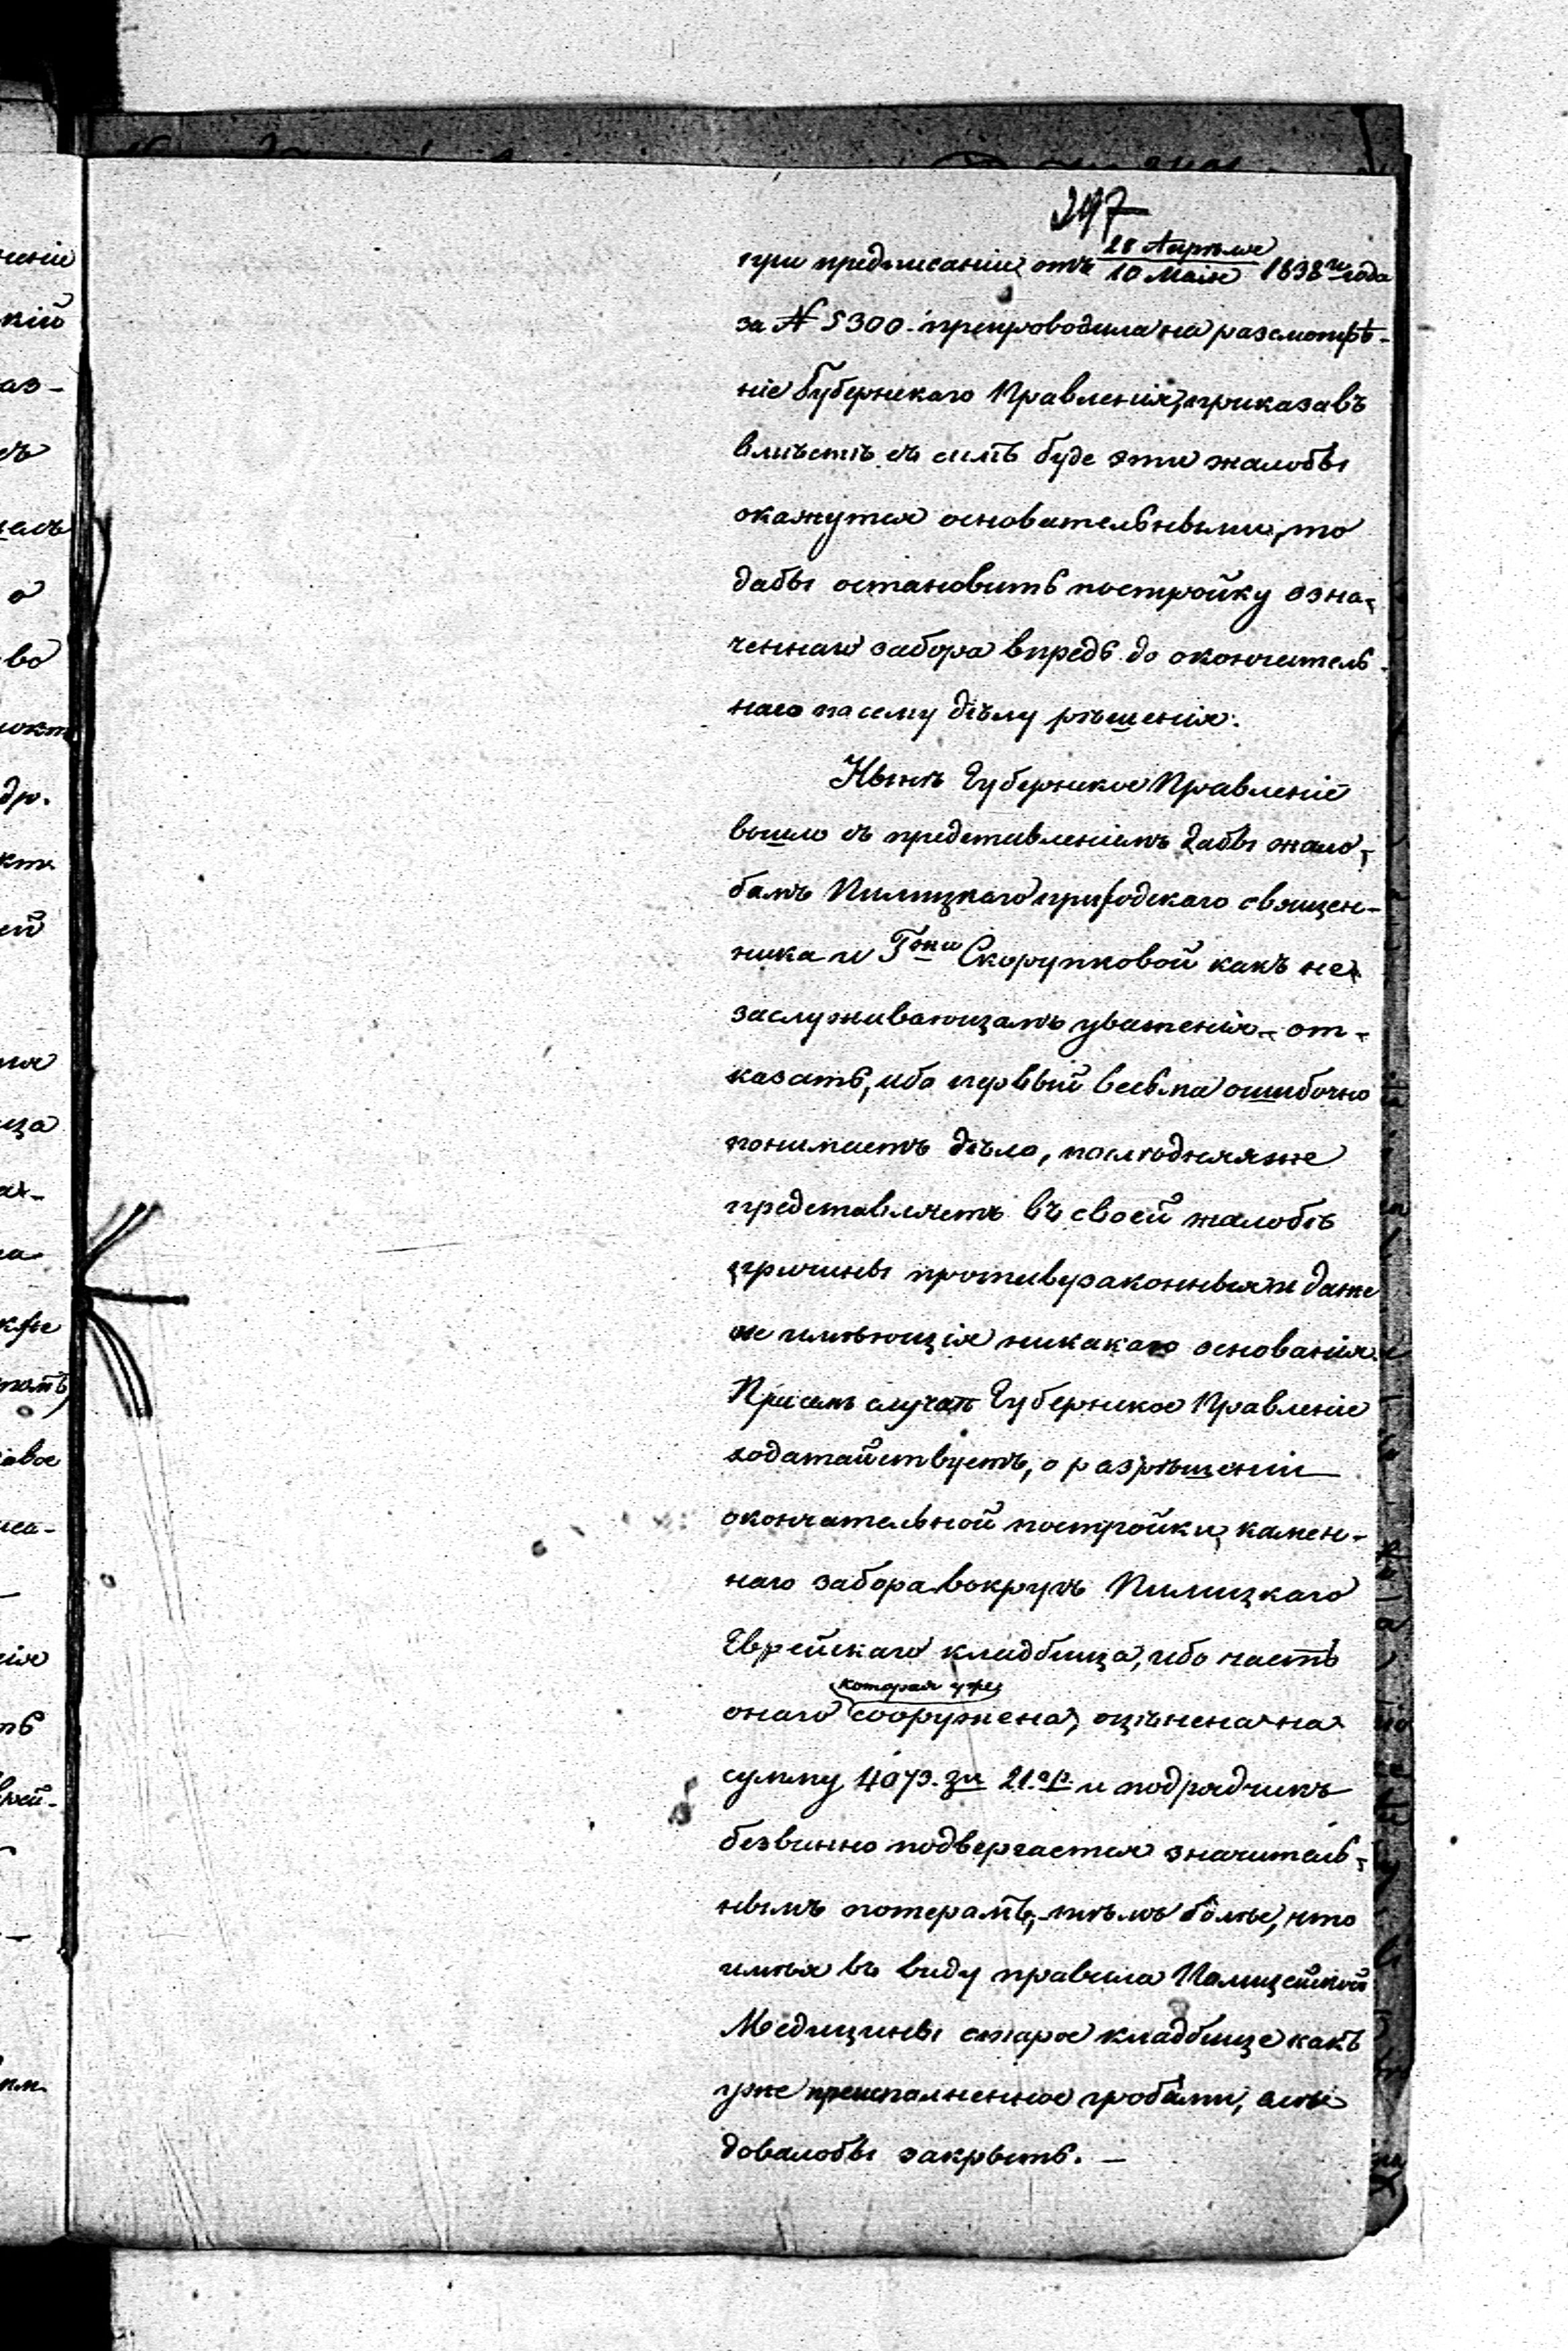 297
при предписаніи отъ 28 Апрѣля / 10 Маія 1838 го года
за № 5300. препроводила на разсмотрѣ-
ніе Губернскаго Правленія, приказавъ
вмѣстѣ съ симъ буде эти жалобы
окажутся основательными, то
дабы остановить постройку озна-
ченнаго забора впредь до окончитель-
наго по сему дѣлу рѣшенія.
Нынѣ Губернское Правленіе
вошло съ представленіемъ дабы жало-
бамъ Пилицкаго приходскаго священ-
ника и Гжи Скорупковой какъ не
заслуживающамъ уваженія – от-
казать, ибо первый весьма ошибочно
понимаетъ дѣло, послѣдняя же
представляетъ въ своей жалобѣ
причины противузаконныя и даже
не имѣющія никакаго основанія.
При семъ случаѣ Губернское Правленіе
ходатайствуетъ, о разрѣшеніи
окончательной постройки, камен-
наго забора вокругъ Пилицкаго
Еврейскаго кладбища, ибо часть
которая уже
онаго сооружена, оцѣнена на
сумму 4073. зл 21. гр. и подрядчикъ
безвинно подвергается значитель-
нымъ потерамъ, тѣмъ болѣе, что
имѣя въ виду правила Полицейской
Медицины старое кладбище какъ
уже преисполненное гробами, слѣ
довалобы закрыть. —